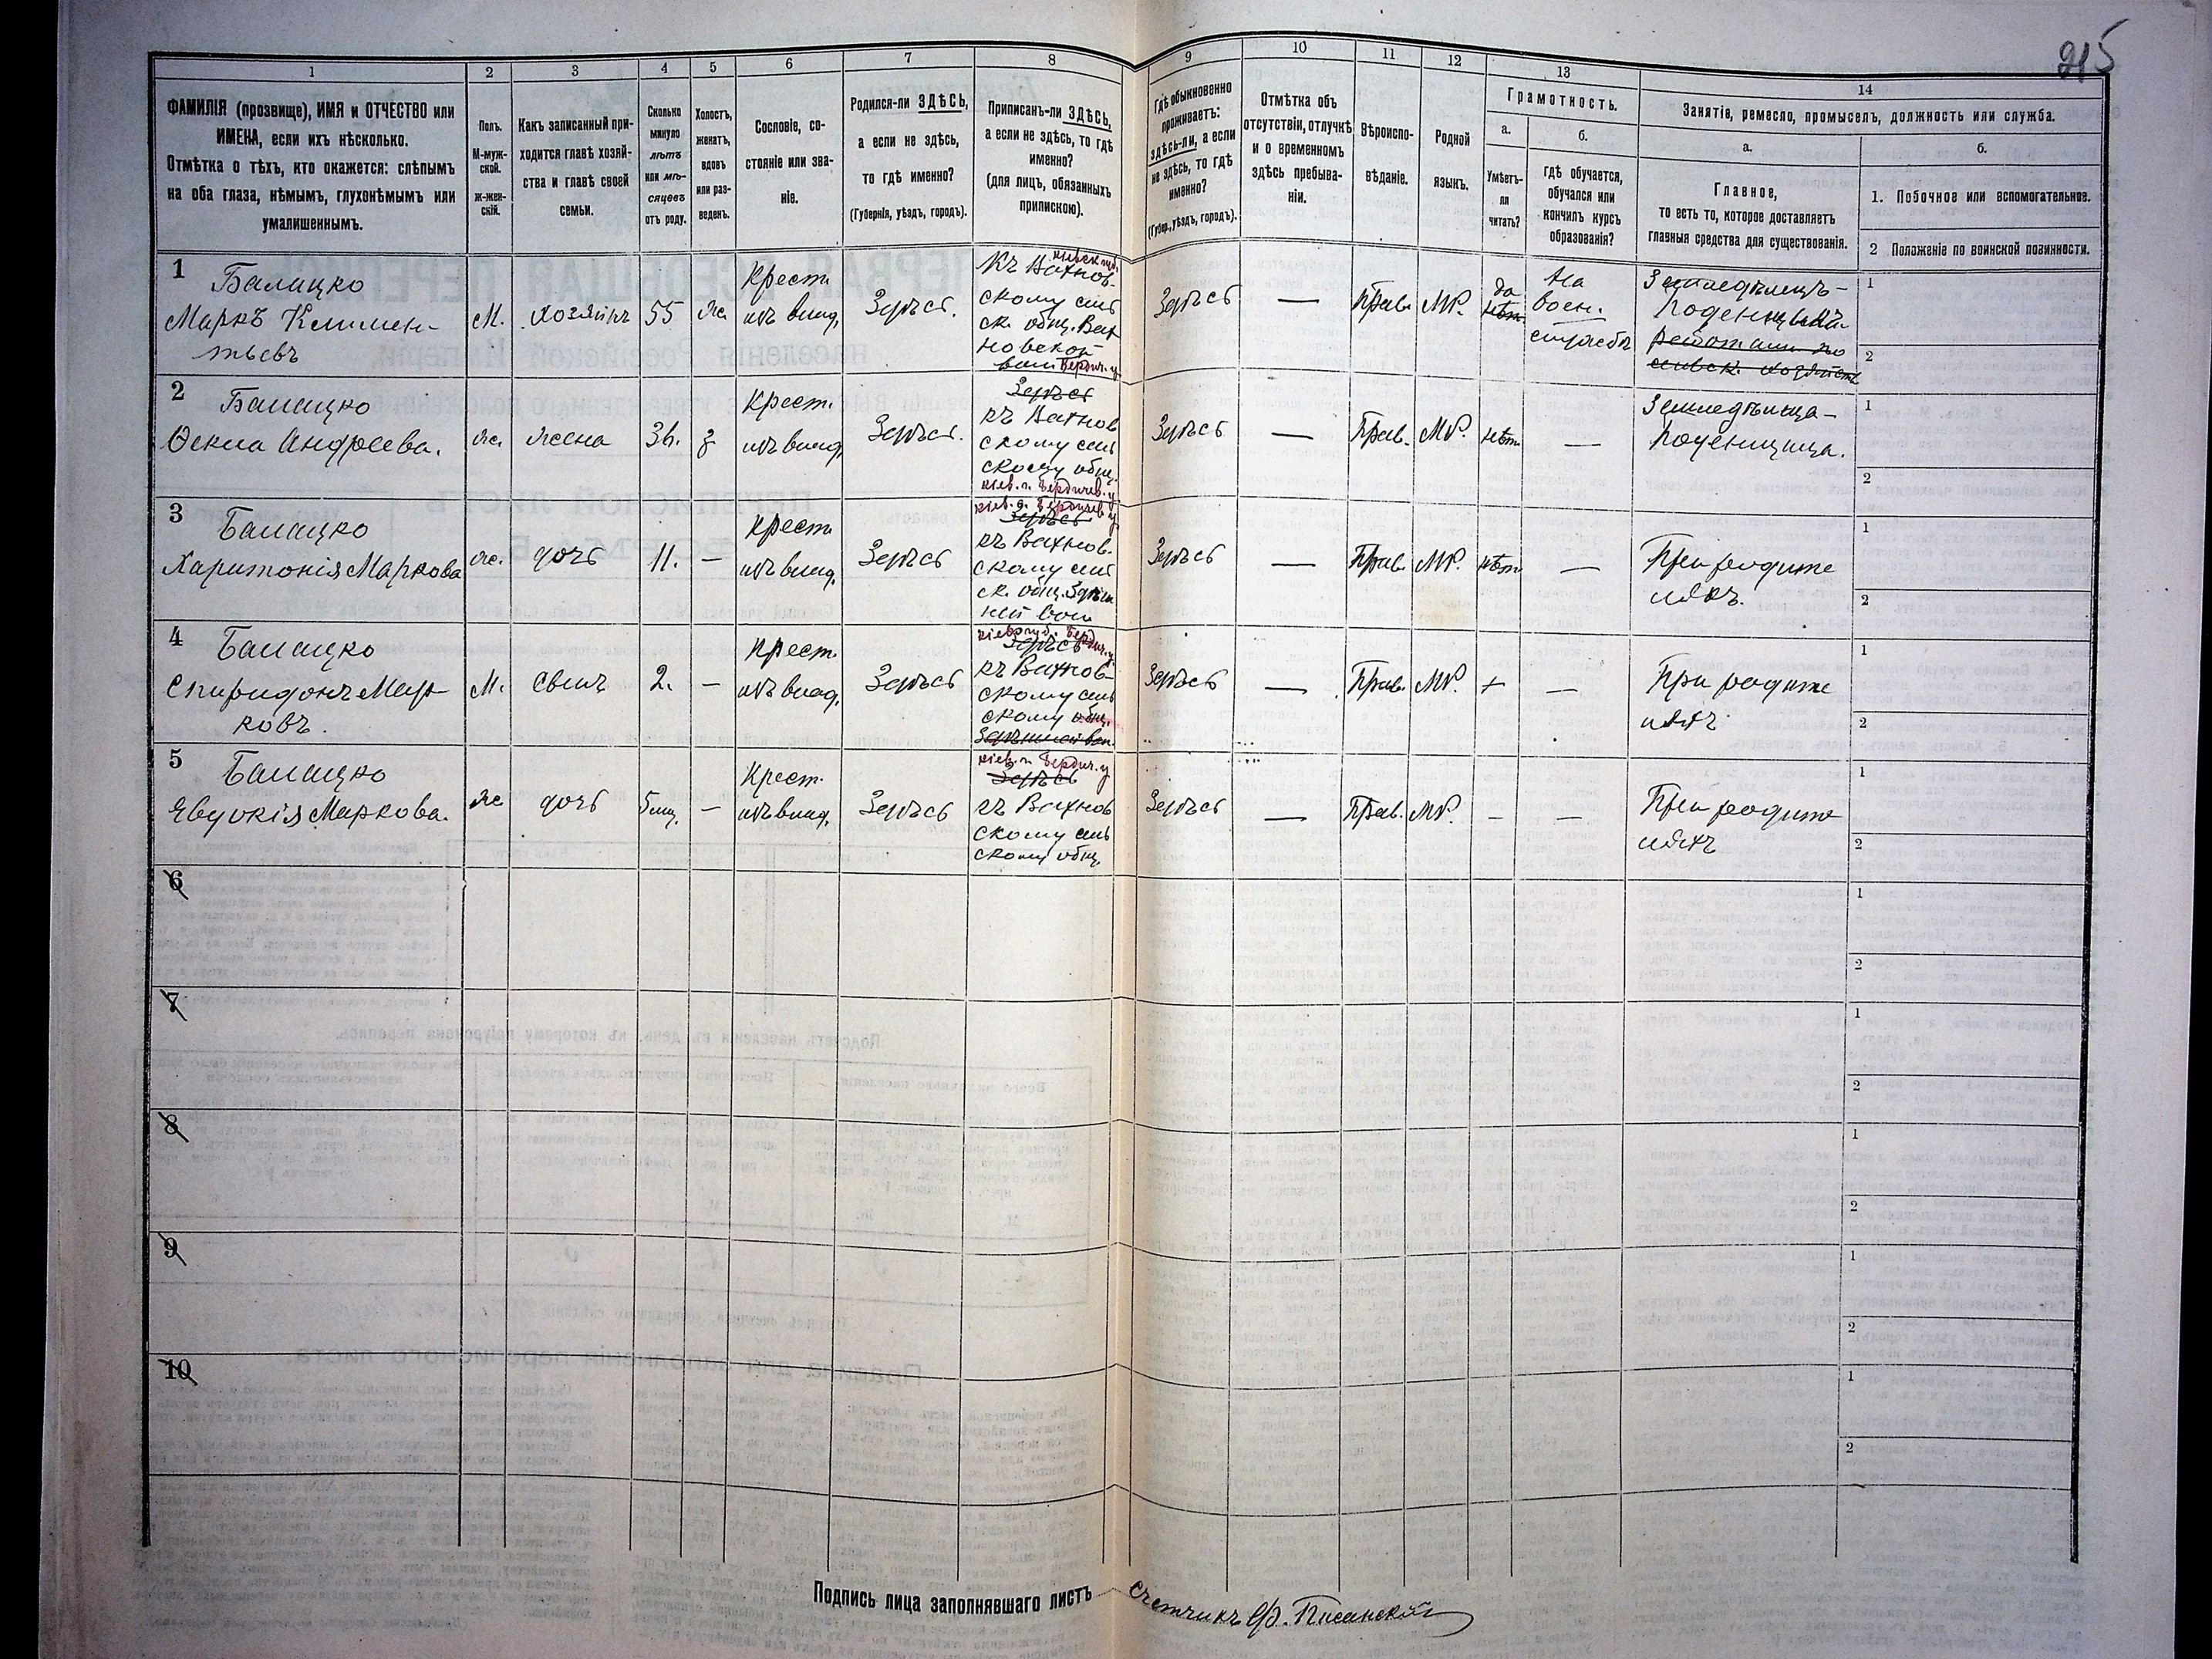 215
1
2
3
4
5
6
7
8
9
10
11
12
13
14
ФАМИЛІЯ (прозвище), ИМЯ и ОТЧЕСТВО или
ИМЕНА, если ихъ нѣсколько.
Отмѣтка о тѣхъ, кто окажется: слѣпымъ
на оба глаза, нѣмымъ, глухонѣмымъ или
умалишеннымъ.
Полъ.
М-муж-
ской.
ж-жен-
скій.
Какъ записанный при-
ходится главѣ хозяй-
ства и главѣ своей
семьи.
Сколько
минуло
лѣтъ
или мѣ-
сяцевъ
отъ роду.
Холостъ,
женатъ,
вдовъ
или раз-
веденъ.
Сословіе, со-
стояніе или зва-
ніе.
Родился-ли ЗДѢСЬ,
а если не здѣсь,
то гдѣ именно?
(Губернія, уѣздъ, городъ).
Приписанъ-ли ЗДѢСЬ,
а если не здѣсь, то гдѣ
именно?
(для лицъ, обязанныхъ
припискою).
Гдѣ обыкновенно
проживаетъ:
здѣсь-ли, а если
не здѣсь, то гдѣ
именно?
(Губер., уѣздъ, городъ).
Отмѣтка объ
отсутствіи, отлучкѣ
и о временномъ
здѣсь пребыва-
ніи.
Вѣроиспо-
вѣданіе.
Родной
языкъ.
Грамотность.
а.
Умѣетъ-
ли
читать?
б.
гдѣ обучается,
обучался или
кончилъ курсъ
образованія?
Занятіе, ремесло, промыселъ, должность или служба.
а.
Главное,
то есть то, которое доставляетъ
главныя средства для существованія.
б.
1. Побочное или вспомогательное.
2 Положеніе по воинской повинности.
1
Балацко
Маркъ Климен-
тьевъ
М.
Хозяинъ
55
ж.
Крест.
изъ влад.
Здѣсь.
Къ Вахнов-
скому сель
ск. общ. Вах
новской
вол. Бердич. у
Здѣсь
—
Прав.
МР.
да
нѣт
На
воен.
службѣ
Земледѣлецъ-
Поденщикъ
1
2
2
Балацко
Ѳекла Андреева.
ж.
жена
36.
з
Крест.
изъ влад.
Здѣсь.
Здѣсь
къ Вахнов
скому сель
скому общ.
кіев. г. Бердичев. у.
Здѣсь
—
Прав.
МР.
нѣт
—
Земледѣлица-
Поденщица.
1
2
3
Балацко
Харитонія Маркова
ж.
дочь
11.
—
Крест
изъ влад.
Здѣсь
кіев. г. Бердичев. у
Здѣсь
къ Вахнов-
скому сел
ск. общ. Здѣш
ней вол
Здѣсь
—
Прав.
МР.
нѣт
—
При родите
ляхъ.
1
2
4
Балацко
Спиридонъ Мар-
ковъ.
М.
Сынъ
2.
—
Крест.
изъ влад.
Здѣсь
кіев. губ. Бердич. у
Здѣсь
къ Вахнов-
скому сель
скому общ.
Здѣшней вол.
Здѣсь
—
Прав.
МР.
+
—
При родите
ляхъ
1
2
5
Балацко
Явдокія Маркова.
ж
дочь
5 мц.
—
Крест.
изъ влад.
Здѣсь
кіев. г. Бердич. у
Здѣсь
къ Вахнов
скому сель
скому общ.
Здѣсь
—
Прав.
МР.
—
—
При родите
ляхъ
1
2
6
1
2
7
1
2
8
1
2
9
1
2
10
1
2
Подпись лица заполнявшаго листъ
Счетчикъ Ф. Писанскій